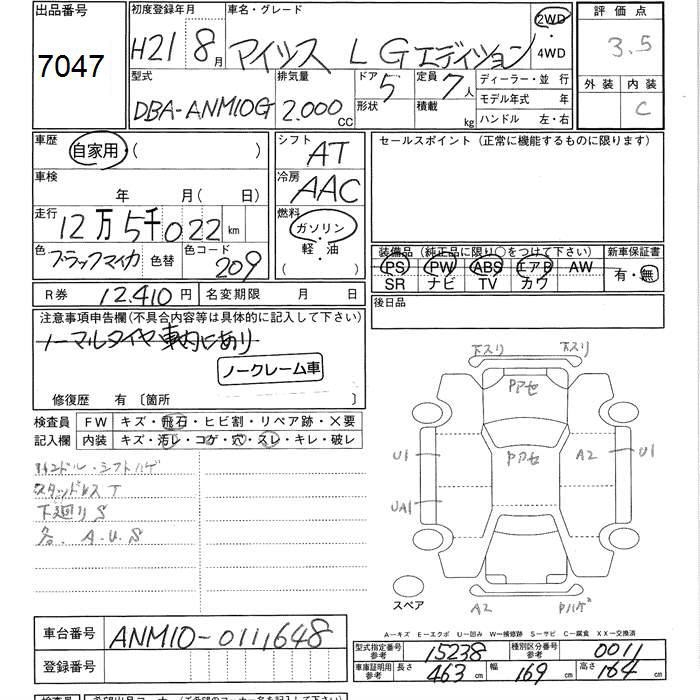 出品番号
7047
初度登録年月
H21 8月
車名・グレード
アイシス L Gエディション
2WD
・
4WD
評価点
3.5
外装 内装
C
型式
DBA-ANM10G
排気量
2.000 CC
ドア 5
形状
定員 7人
積載 kg
ディーラー・並行
モデル年式 年
ハンドル 左・右
車歴
自家用・( )
車検
年 月(日)
走行
12万5千022km
色
ブラックマイカ
色替
色コード
209
シフト
AT
冷房
AAC
燃料
ガソリン
・
軽・油
( )
セールスポイント(正常に機能するものに限ります)
装備品(純正品に限り○をつけて下さい)
PS PW ABS エアB AW
SR ナビ TV カワ
新車保証書
有・無
後日品
R券 12.410円 名変期限 月 日
注意事項申告欄(不具合内容等は具体的に記入して下さい)
ノーマルタイヤ車内にあり
ノークレーム車
修復歴 有 〔箇所 〕
検査員 FW キズ・飛石・ヒビ割・リペア跡・×要
記入欄 内装 キズ・汚レ・コゲ・穴・スレ・キレ・破レ
ハンドル・シフトハゲ
スタッドレスT
下廻りS
各.A.U.S
下スリ 下スリ
PアセU1
Pアセ
A2
U1
UA1
スペア
A2
Pハゲ
A－キズ E－エクボ U－凹み W－補修跡 S－サビ C－腐食 XX－交換済
車台番号 ANM10-0111648
登録番号
型式指定番号
参考
15238
種別区分番号
参考
0011
車庫証明用
参考
長さ 463cm 幅 169cm 高さ 164cm